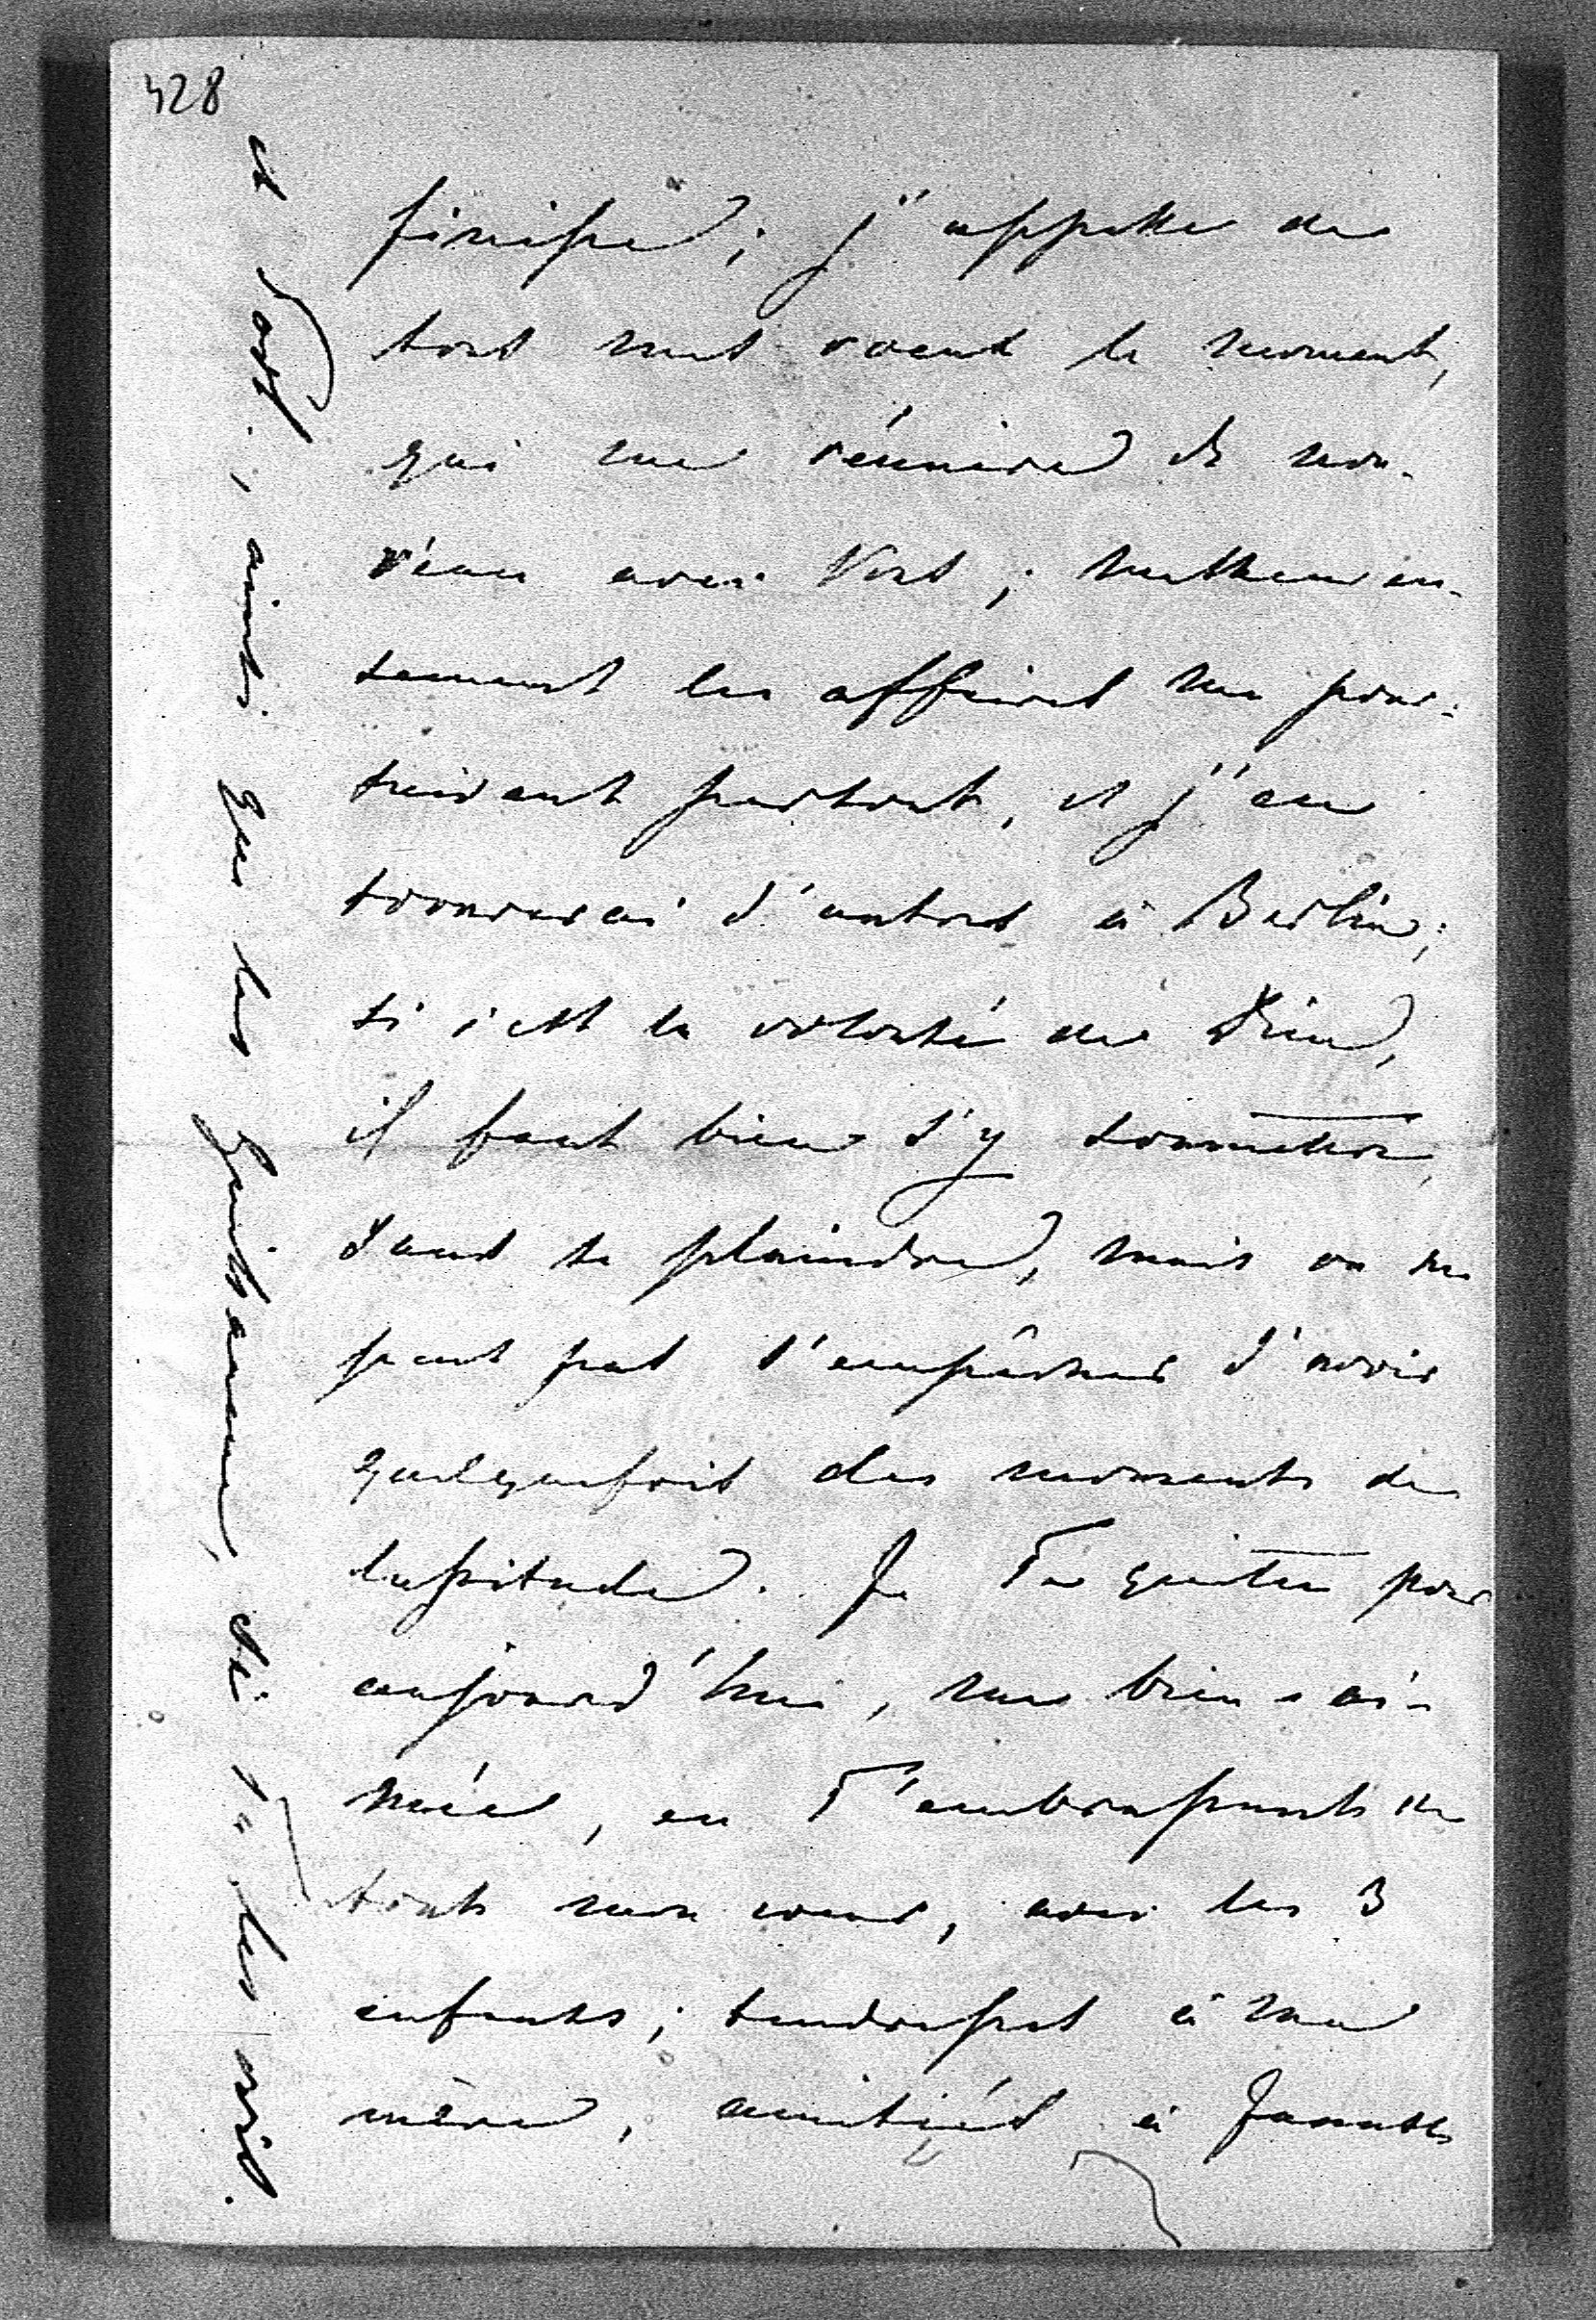 428
finisse; j'appelle de
tous mes voeux le moment,
qui me réunira de nou-
veau avec Vous; malheureu-
sement les affaires me pour-
suivent partout, et j'en
trouverai d'autres à Berlin;
si c'est la volonté de Dieu,
il faut bien s'y soumettre,
sans se plaindre, mais on ne
peut pas s'empêcher d'avoir
quelquefois des moments de
lassitude. Je Te quitte pour
aujourd'hui, ma bien-ai-
mée, en T'embrassant de
tout mon coeur, avec les 3
enfants; tendresses à ma
mère, amitiés à Jeannette
et ainsi que les si Tu les vois.